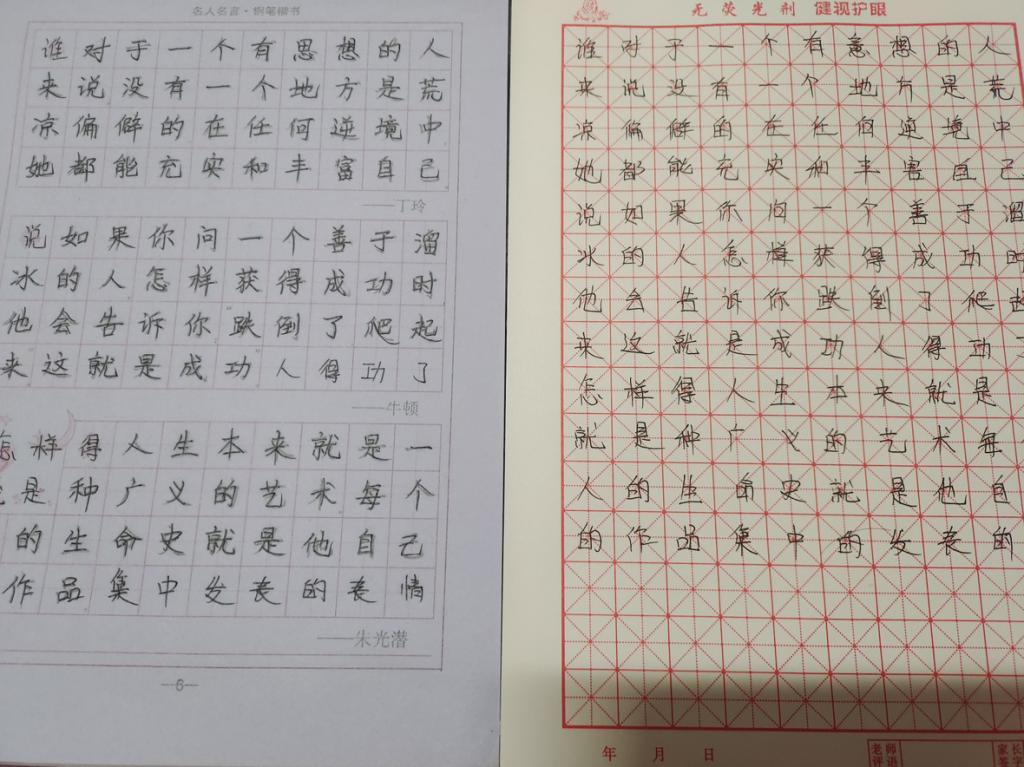 名人名言·钢笔楷书
谁对于一个有思想的人
来说没有一个地方是荒
凉偏僻的在任何逆境中
她都能充实和丰富自己
——丁玲
说如果你问一个善于溜
冰的人怎样获得成功时
他会告诉你跌倒了爬起
来这就是成功人得功了
——牛顿
怎样得人生本来就是一
是种广义的艺术每个
的生命史就是他自己
作品集中发表的表情
——朱光潜
—6—
无荧光剂 健视护眼
谁对于一个有意想的人
来说没有一个地方是荒
凉偏僻的在任何逆境中
她都能充实和丰害自己
说如果你问一个善于溜
冰的人怎样获得成功时
他会告诉你跌倒了爬起
来这就是成功人得功了
怎样得人生本来就是
就是种广义的艺术每
人的生命史就是他自
的作品集中的发表的
年 月 日
老师评语
家长签字